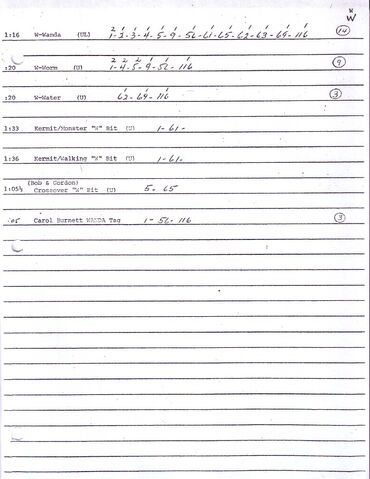 W
W
1:16 W-Wanda (UL) 1-2-3-4-5-9-56-61-65-62-63-69-116 14
:20 W-Worm (U) 1-4-5-9-56-116 9
:20 W-Water (U) 62-69-116 3
1:33 Kermit/Monster "W" Bit (U) 1-61-
1:36 Kermit/Walking "W" Bit (U) 1-61-
(Bob & Gordon)
1:05½ Crossover "W" Bit (U) 5-65
:05 Carol Burnett WANDA Tag 1-56-116 3